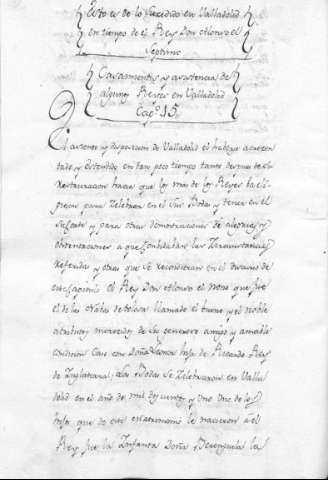 Esto es de lo sucedido en Valladolid
en tiempo de el Rey Don Alonso el
Septimo
Casamientos y asistencia de
algunos Reyes en Valladolid
Capº 15.
y disposicion de Valladolid el trabajo acrecen
tado y estendido en tan poco tiempo tanto despues de su
restauracion hacia que los mas de los Reyes la eli
giesen para Zelebrar en el sus Bodas y tener en el
y para otras demostraciones de alegrias y
obstentaciones a que combidaban las Zircunstancias
referidas y otras que se reconoceran en el discurso de
este capitulo El Rey Don Alonso el Nono que fue
el de las Nabas de tolosa llamado el bueno y el noble
atributos merecidos de su generoso animo y amable
condicion Caso con doña Leonor hija de Ricardo Rey
de Inglaterra, las Bodas se Zelebraron en Valla
dolid en el año de mil ducientos y uno Uno de los
hijos que de este matrimonio le nacieron a el
Rey fue la Infanta Doña Berenguela la